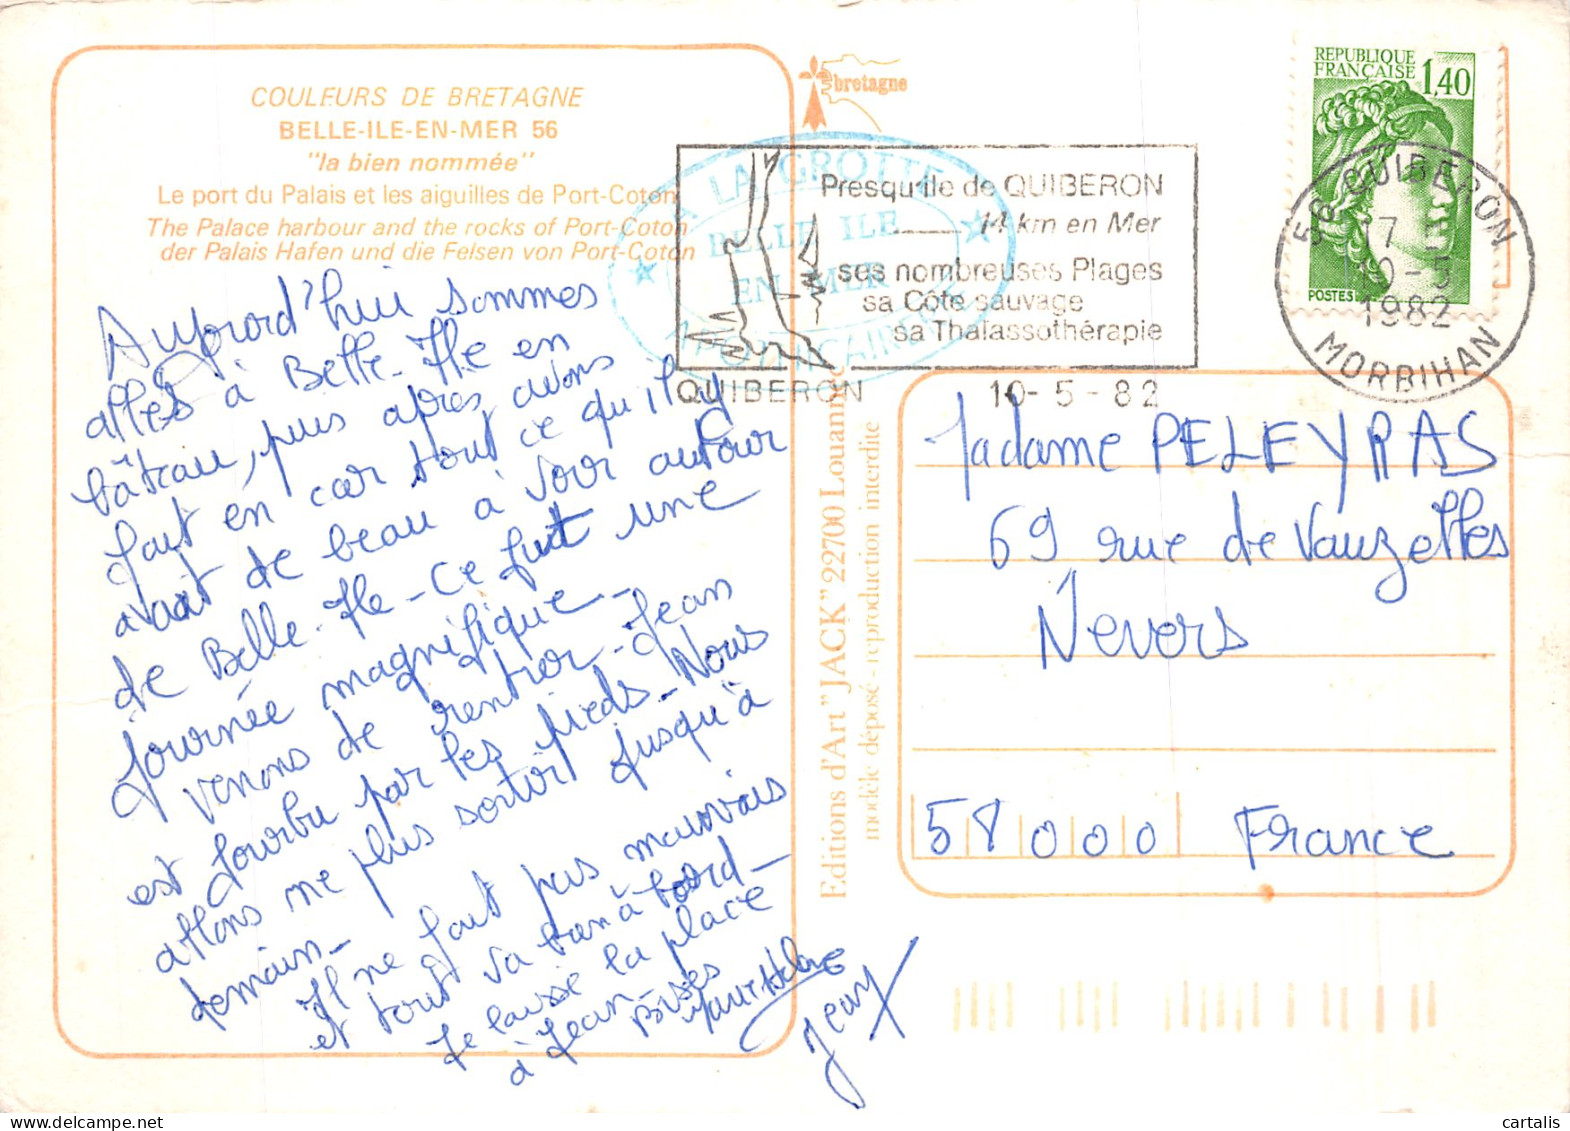 COULEURS DE BRETAGNE
BELLE-ILE-EN-MER 56
"la bien nommée"
Le port du Palais et les aiguilles de Port-Coton
The Palace harbour and the rocks of Port-Coton
der Palais Hafen und die Felsen von Port-Coton
Aujourd'hui sommes
allés à Belle-Ile en
bâteau, puis après avons
fait en car tout ce qu'il y
avait de beau à voir autour
de Belle-Ile - Ce fut une
journée magnifique -
venons de rentrer - Jean
est fourbu par les pieds - Nous
allons ne plus sortir jusqu'à
demain -
Il ne fait pas mauvais
et tout va bien à bord -
Je laisse la place
à Jean -
Bises
Marie Hélène
Jean
bretagne
A LA GROTTE
BELLE ILE
EN MER
APOTHICAIRERIE
Presqu'île de QUIBERON
14 km en Mer
ses nombreuses Plages
sa Côte sauvage
sa Thalassothérapie
QUIBERON 10-5-82
REPUBLIQUE
FRANÇAISE 1,40
POSTES
56 QUIBERON
17 H
10-5
1982
MORBIHAN
Editions d'Art "JACK" 22700 Louannec
modèle déposé - reproduction interdite
Madame PELEYRAS
69 rue de Vauzelles
Nevers
58000 France
cartalis